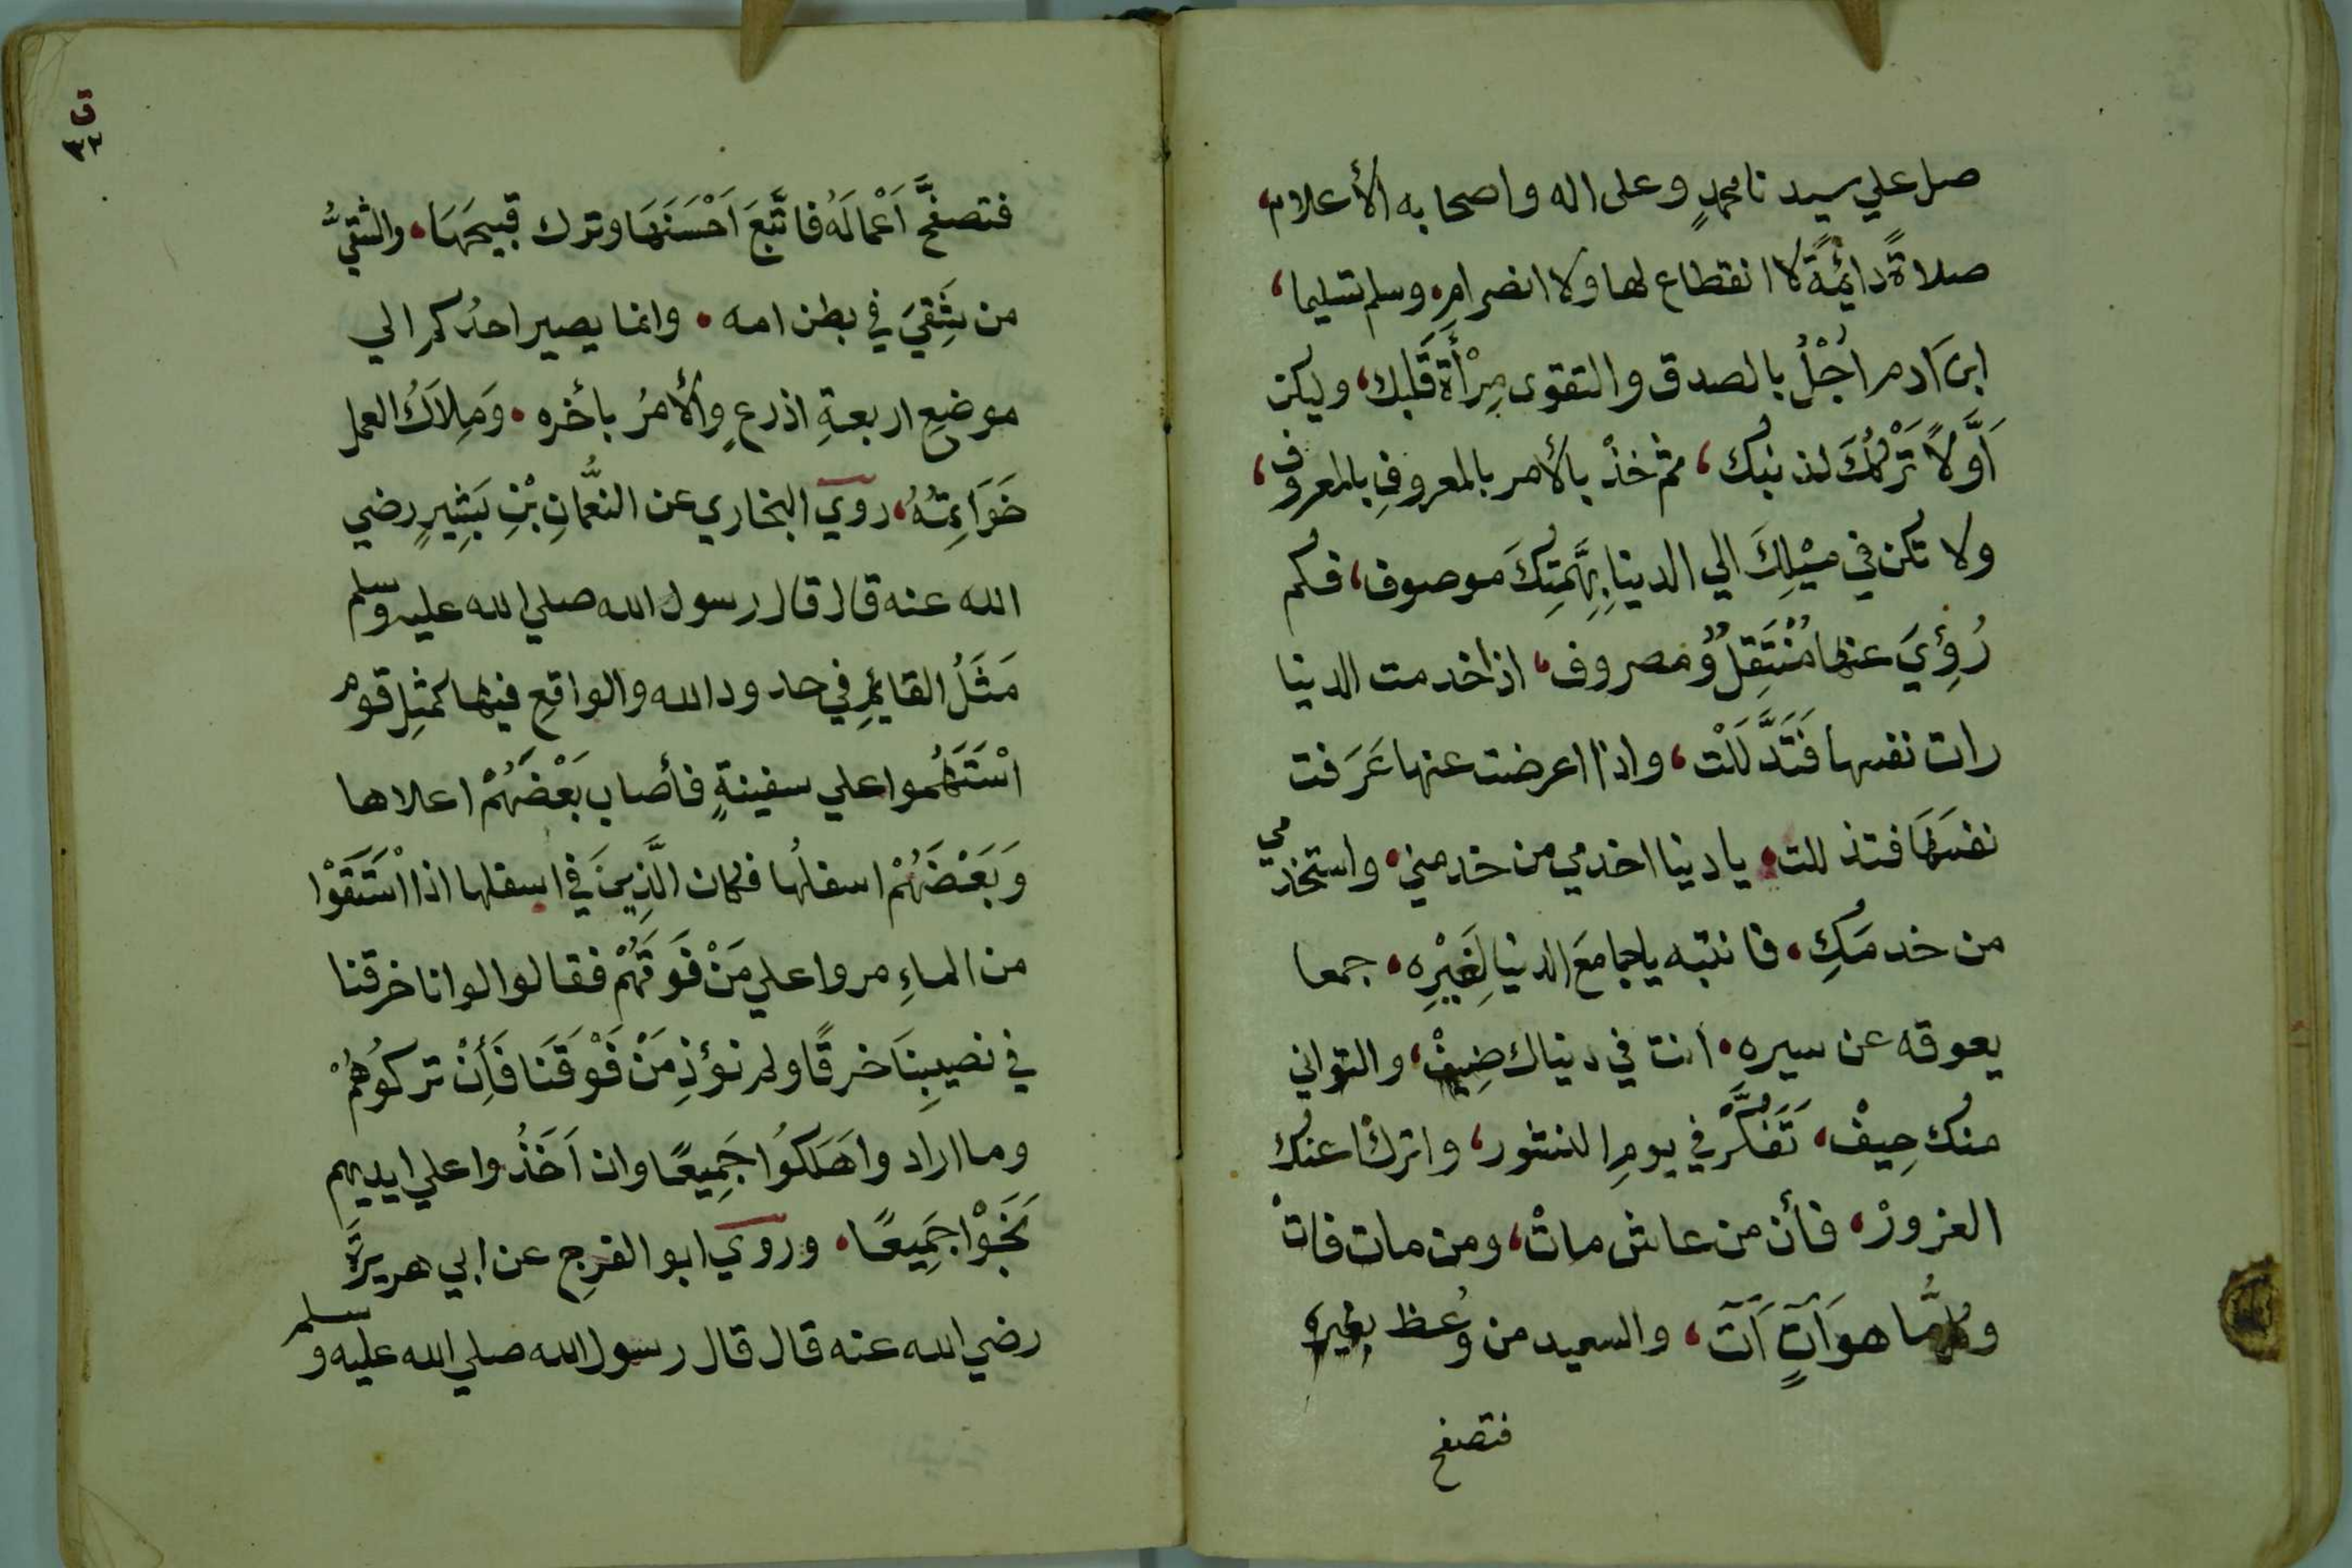 صل علي سيدنا محمدٍ وعلى اله واصحابه الأعلام،
صلاةً دائمةً لا انقطاع لها ولا انضرام، وسلم تسليما،
ابنَ ادم اُجْلُ بالصدق والتقوى مِرْأَةَ قَلبك، وليكن
اَوَّلاً تَرْكُكَ لذنبك، ثم خذْ بالأمر بالمعروفِ بالمعروف،
ولا تكن في ميْلِكَ الي الدنيا بِهِمَّتِكَ موصوف، فكم
رُؤِيَ عنها مُنْتَقِلٌ ومصروف، اذا خدمت الدنيا
رات نفسها فَتَدَّلَلَتْ، واذا اعرضت عنها عَرَفت
نفسَهَا فتذللت، يا دنيا اخدمي من خدمني، واستخدمي
من خدمَكِ، فانتبه يا جامعَ الدنيا لِغَيْرِه، جمعا
يعوقه عن سيره، انت في دنياك ضِيفْ، والتواني
منك حِيفْ، تَفَكَّرْ في يومِ النشور، واتركْ عنك
الغرورْ، فأن من عاش ماتْ، ومن مات فاتْ
وكلُّما هوَآتٍ آتَ، والسعيد من وُعظ بغيره
فتصفح
ق
٣٣
فتصفحَّ اَعْمالَهُ فاتَّبَعَ اَحْسَنَهَا وترك قبيحَهَا، والشقيُّ
من شَقِيَ في بطن امه، وانما يصير احدُكم الي
موضعِ اربعةِ اذرعٍ والأمرُ بأخره، وَمِلاَكُ العمل
خَوَاتِمُهُ، روي البخاري عن النعُّمانِ بْنِ بَشِيرٍ رضي
الله عنه قال قال رسول الله صلي الله عليه وسلم
مَثَلُ القايمِ في حدود الله والواقعِ فيها كمثلِ قوم
اسْتَهَموا علي سفينةٍ فأصاب بَعْضُهُمْ اعلاها
وَبَعْضُهُمْ اسفلَها فكان الَّذِينَ في اسفلها اذا اسْتَقَوْا
من الماءِ مروا علي مَنْ فَوقَهُمْ فقالوا لوانا خرقنا
في نصيبِنَا خرقًا ولم نؤذِ مَنْ فَوْقَنَا فَأِنْ تركوُهُمْ
وما ارادوا هَلَكوُا جَمِيعًا وان اَخَذُوا علي ايديهم
نَجَوْا جَمِيعًا، وروي ابو الفرج عن ابي هريرَةَ
رضي الله عنه قال قال رسول الله صلي الله عليه وسلم